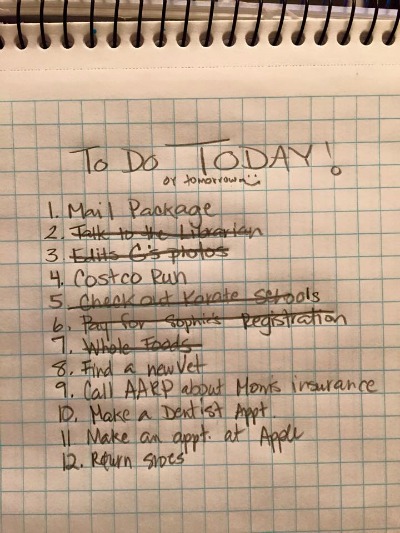 To Do TODAY!
or tomorrow
1. Mail Package
2. Talk to the Librarian
3. Edits G's photos
4. Costco Run
5. Check out Karate Schools
6. Pay for Sophie's Registration
7. Whole Foods
8. Find a new Vet
9. Call AARP about Mom's insurance
10. Make a Dentist Appt.
11 Make an appt. at Apple
12. Return shoes